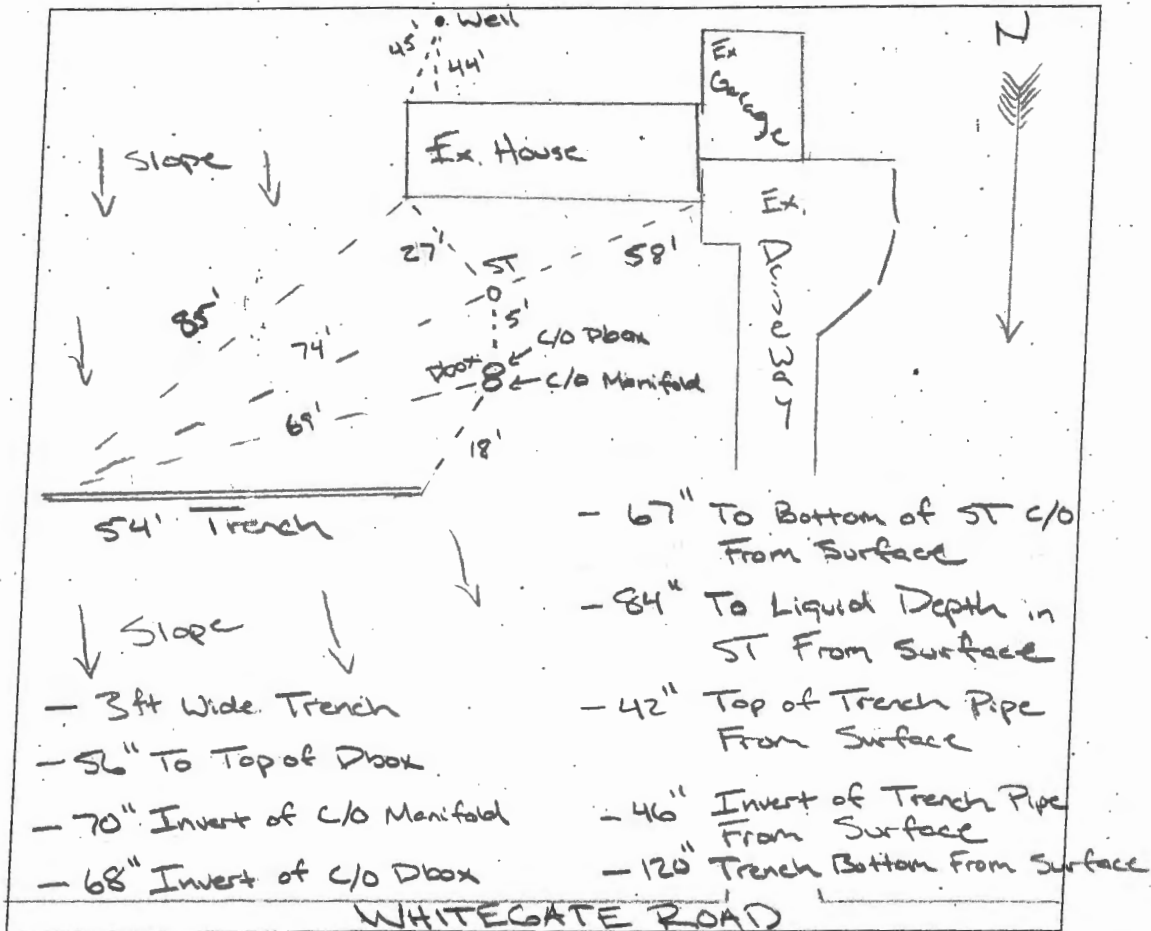 Well
N
45'
44'
Ex
Garage
Ex. House
Slope
Ex.
Driveway
27'
58'
ST
5'
85'
74'
C/O Dbox
Dbox
C/O Manifold
69'
18'
54' Trench
Slope
- 3ft Wide Trench
- 56" To Top of Dbox
- 70" Invert of C/O Manifold
- 68" Invert of C/O Dbox
- 67" To Bottom of ST C/O
From Surface
- 84" To Liquid Depth in
ST From Surface
- 42" Top of Trench Pipe
From Surface
- 46" Invert of Trench Pipe
From Surface
- 120" Trench Bottom From Surface
WHITEGATE ROAD